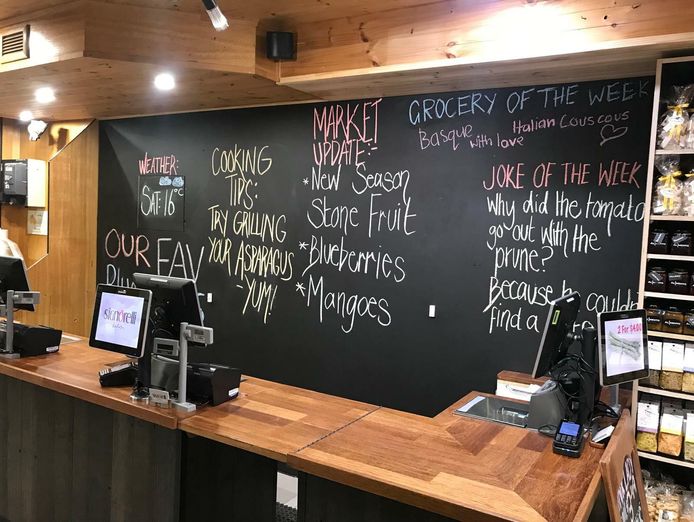 WEATHER:
SAT: 16°C
OUR FAV
COOKING
TIPS:
TRY GRILLING
YOUR ASPARAGUS
- YUM!
MARKET
UPDATE:
* New Season
Stone Fruit
* Blueberries
* Mangoes
GROCERY OF THE WEEK
Basque with love
Italian Couscous
JOKE OF THE WEEK
Why did the tomato
go out with the
prune?
Because he couldn
find a
signorelli
2 For $4.00